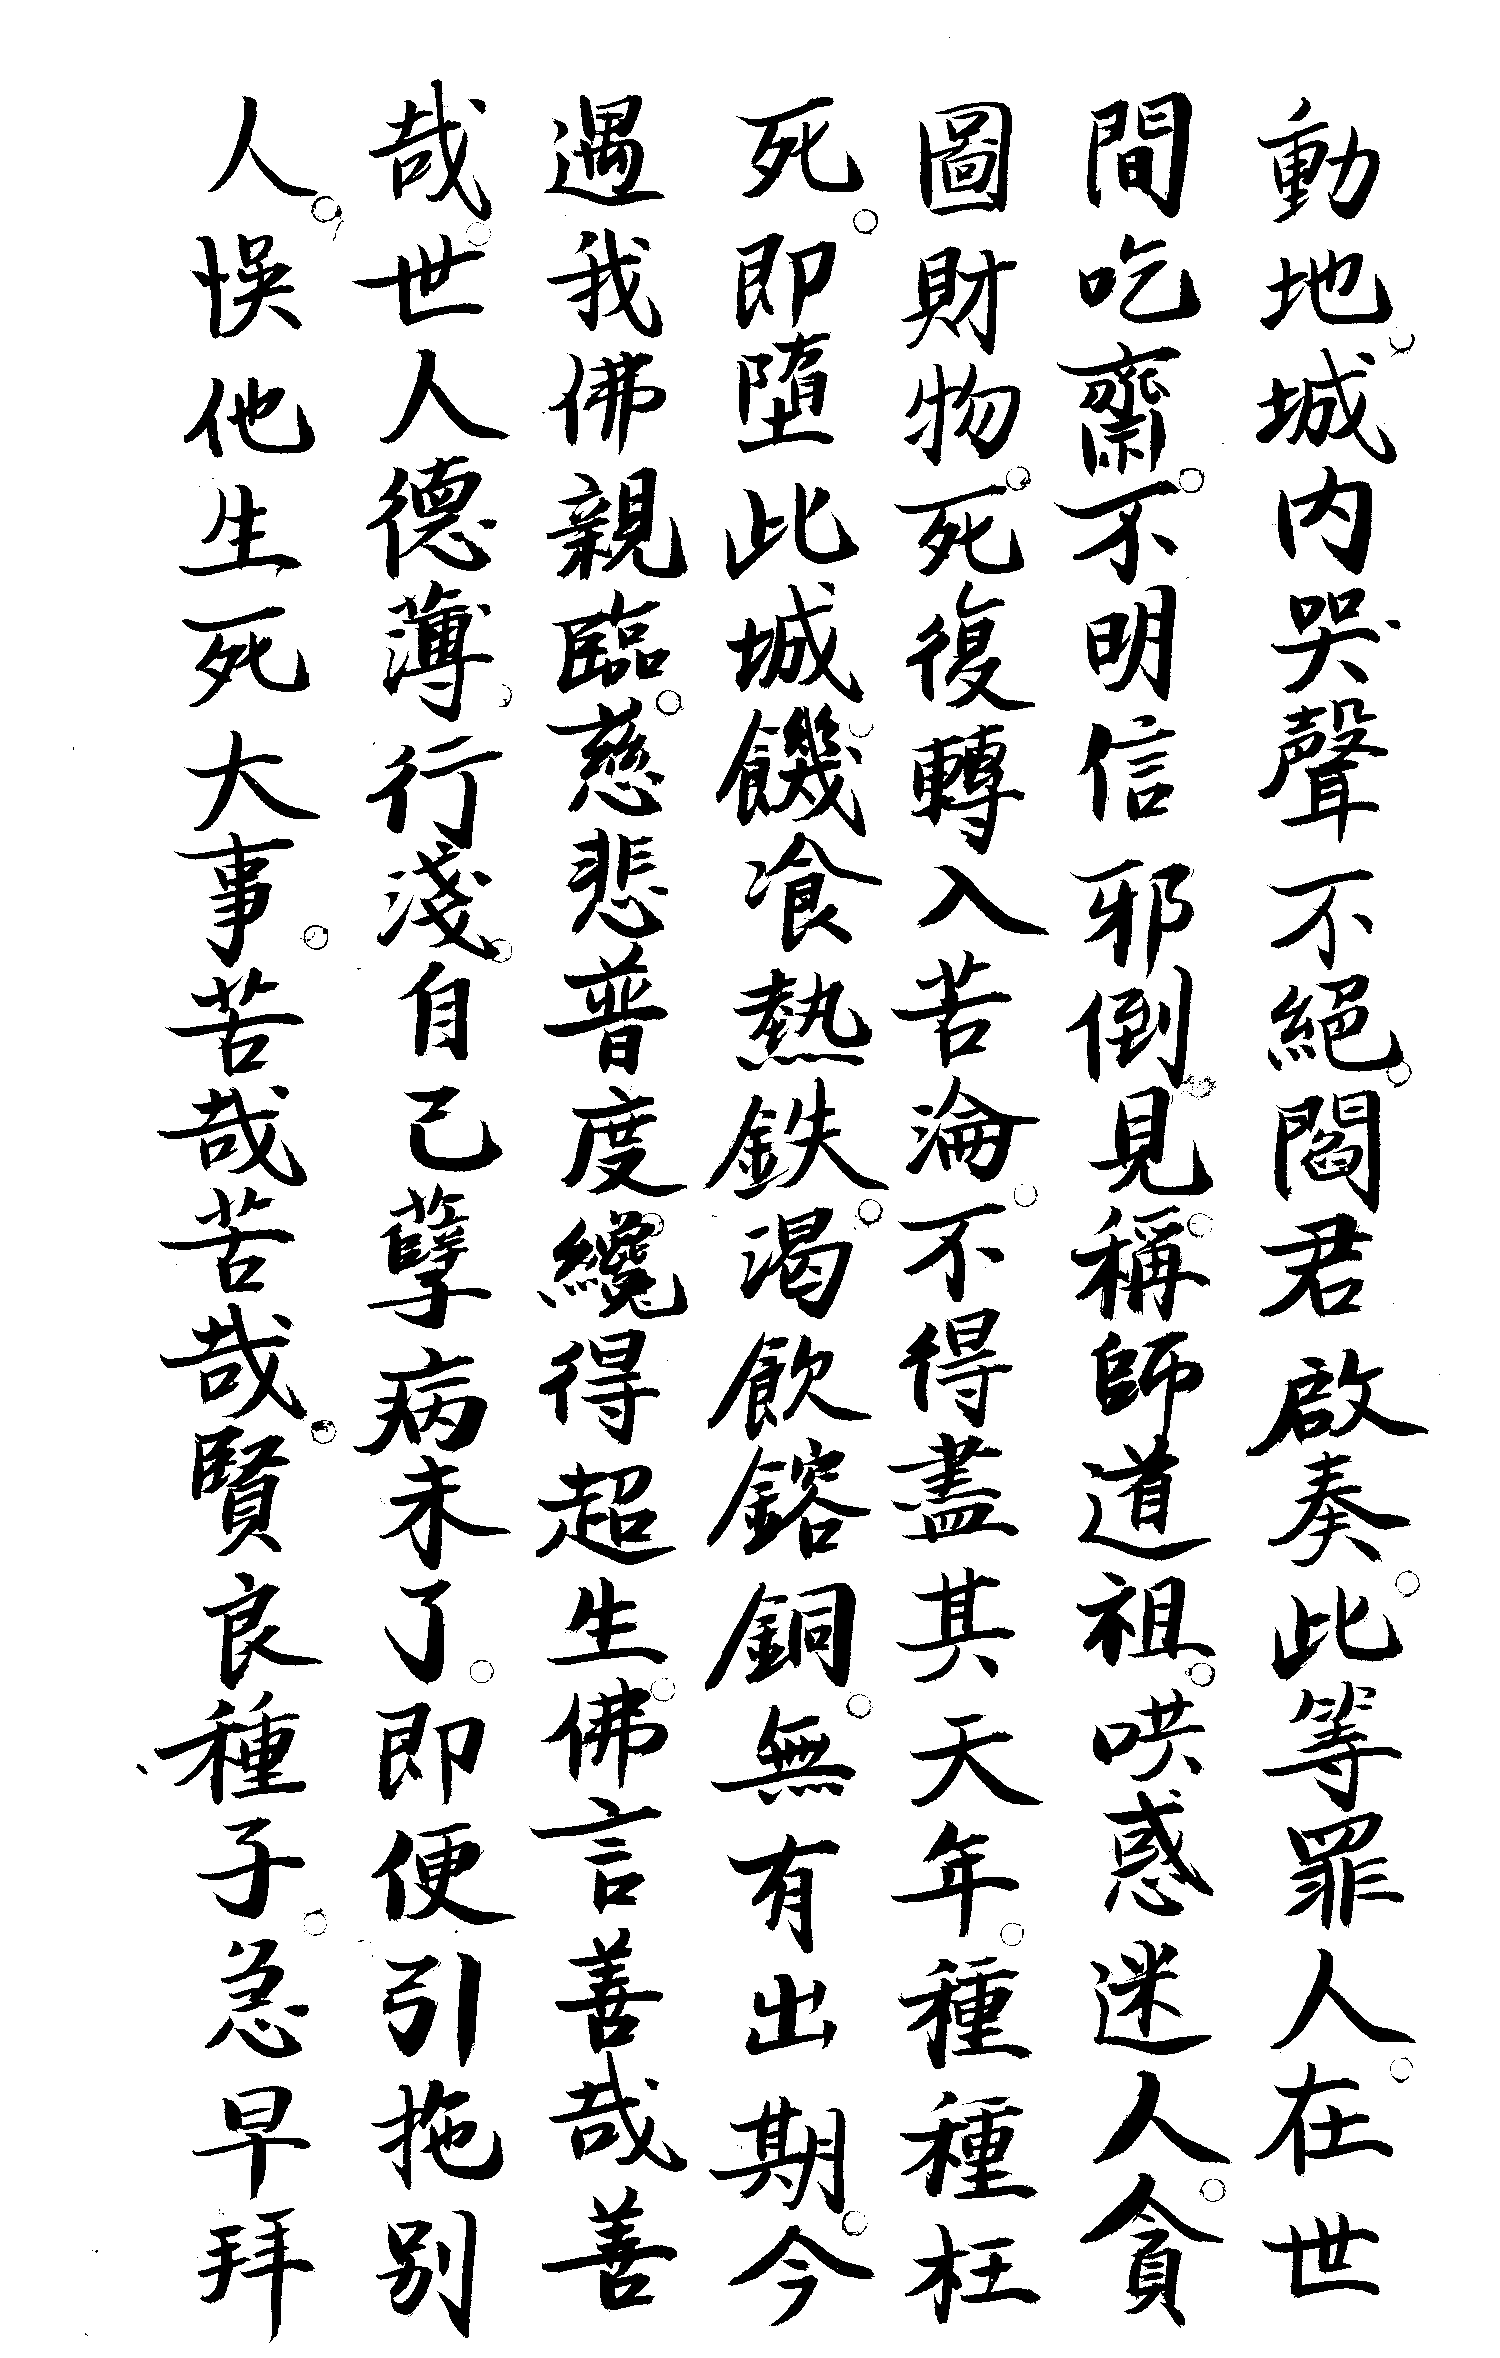 動地。城内哭聲不絕。閻君啟奏。此等罪人。在世
間吃齋。不明信邪倒。見。稱師道祖。哄惑迷人。貪
圖財物。死復轉入苦淪。不得盡其天年。種種枉
死。即墮此城。饑飡熱鉄。渴飲鎔銅。無有出期。今
遇我佛親臨。慈悲普度。纔得超生。佛言善哉善
哉。世人德薄。行淺。自己孽病未了。即便引拖別
人。悞他生死大事。苦哉苦哉。賢良種子。急早拜